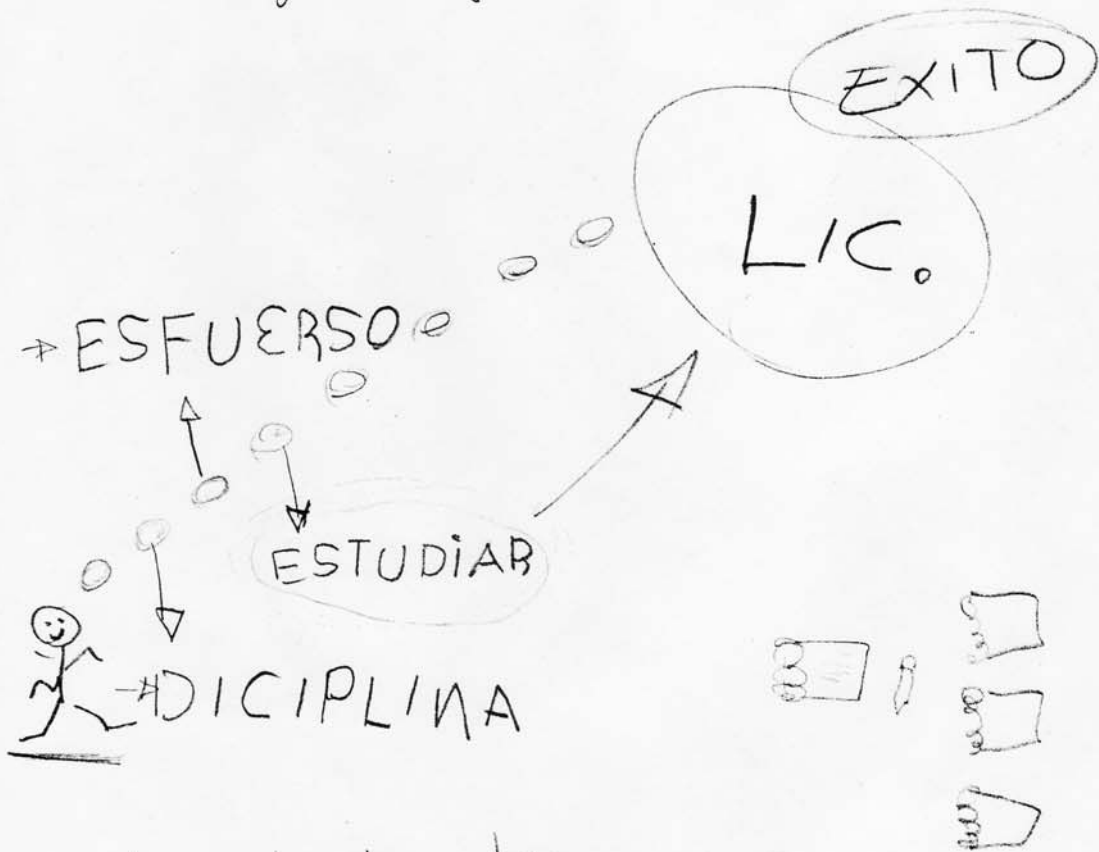 EXITO
LIC.
ESFUERSO
ESTUDIAR
DICIPLINA